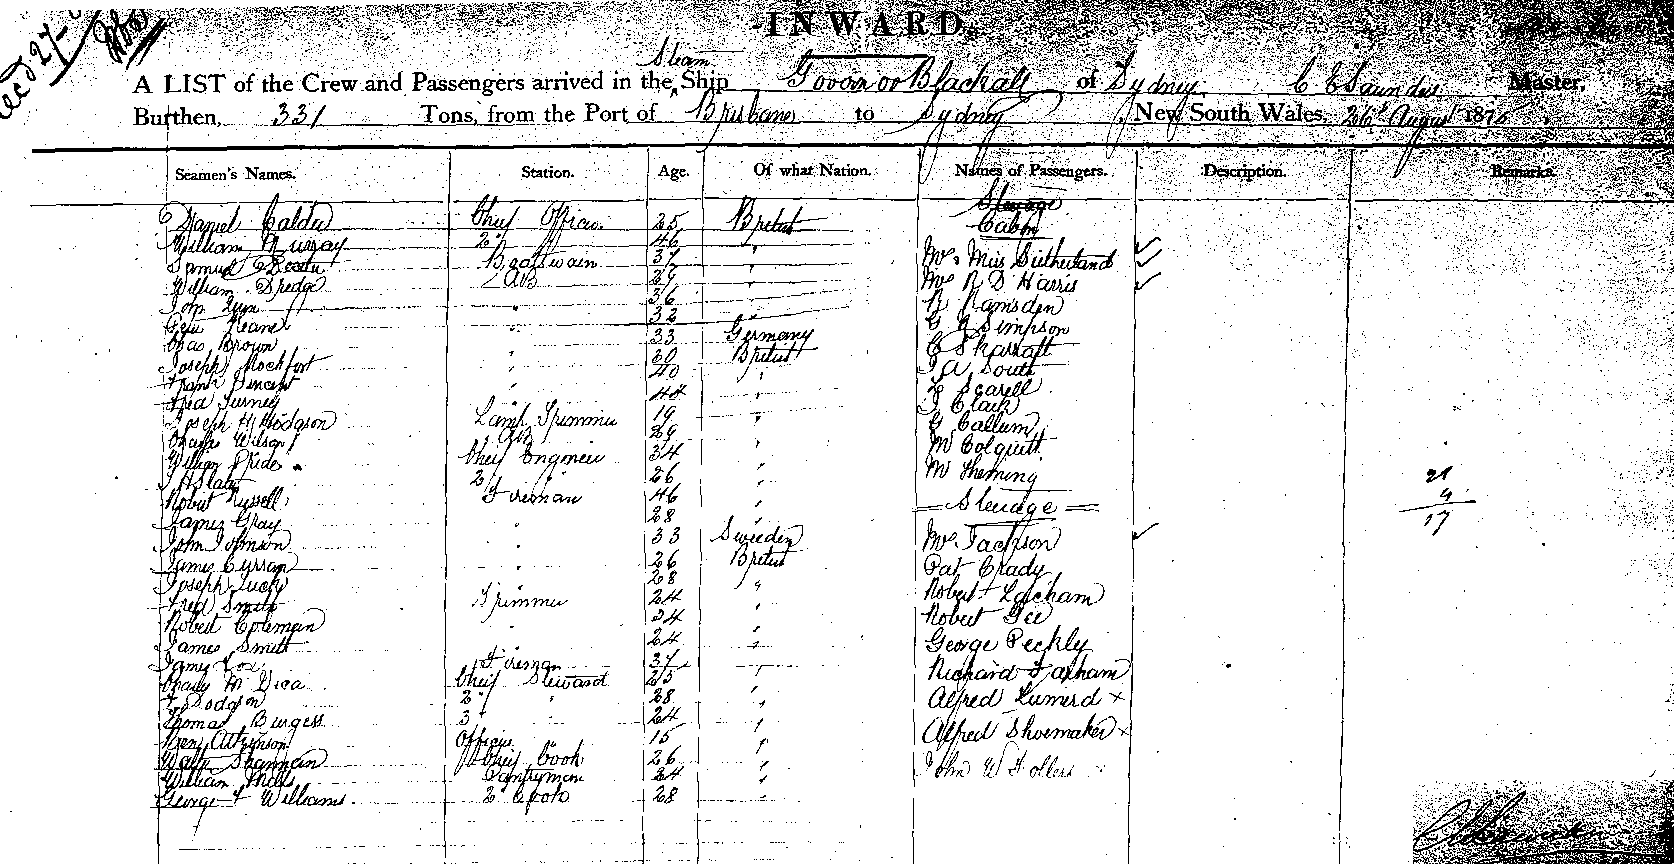 Recd 27
INWARD.
Steam
A LIST of the Crew and Passengers arrived in the Ship Govornor Blackall of Sydney, C E Saunders Master,
Burthen, 331 Tons, from the Port of Brisbane to Sydney New South Wales, 26th August 187
Seamen's Names. Station. Age. Of what Nation. Names of Passengers. Description. Remarks.
Steerage
Daniel Calder Cheif Officer 25 Bretish Cabin
William Murray 2 " 46 "
Samuel Boatswain 37 " Mrs & Miss Sutherland
William Spedge AB 29 " Mrs R D Harris
Tom 36 " R Ramsden
Geo Keane " 32 " G Simpson
Chas Brown " 33 Germany C
Joseph Mockfort " 30 Bretish J A South
Frank Vincent " 40 " Scarell
Fred Turney " 40 " J Clark
Joseph H Hodgson Lamp Trimmer 19 " G Callum
Charles Wilson AB 29 " Mr Colquitt
William Pride Cheif Engineer 34 " Mr Fleming
J H Slater 2 " 26 "
Robert Russell Fireman 46 " = Steerage =
James Gray " 28 "
John Johnson " 33 Sweeden Mrs Jackson
James Curran " 26 Bretish Pat Grady
Joseph Lucey " 28 " Robert Lacham
Fred Smith Trimmer 24 "
Robert Coleman " 24 " Robert Gee
James Smith " 24 " George Peckley
James Cox Fireman 37 " Richard Farham
Charles McVica Cheif Steward 25 "
F Dodgson 2 " " 28 " Alfred Lumerd x
Thomas Burgess 3 " " 24 "
Ben Atkinson Officers " 15 " Alfred Shoemaker x
Walter Shannan Cheif Cook 26 "
William Mills Pantryman 24 " John W Follers
George F Williams 2 Cook 28 "
21
4
17